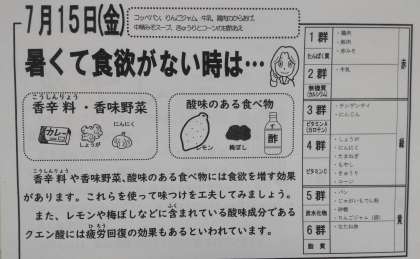 7月15日(金)
コッペパン、りんごジャム、牛乳、鶏肉のからあげ、
中華みそスープ、きゅうりとコーンの甘酢あえ
暑くて食欲がない時は…
こうしんりょう
香辛料・香味野菜
カレー
しょうが
にんにく
酸味のある食べ物
レモン
梅ぼし
酢
こうしんりょう
香辛料や香味野菜、酸味のある食べ物には食欲を増す効果
があります。これらを使って味つけを工夫してみましょう。
ふく
また、レモンや梅ぼしなどに含まれている酸味成分である
ひろう
クエン酸には疲労回復の効果もあるといわれています。
1群
たんぱく質
・鶏肉
・豚肉
・赤みそ
2群
無機質
(カルシウム)
・牛乳
3群
ビタミンA
(カロテン)
・チンゲンサイ
・にんじん
4群
ビタミンC
・しょうが
・にんにく
・たまねぎ
・もやし
・きゅうり
・コーン
5群
炭水化物
・パン
・じゃがいもでん粉
・砂糖
・りんごジャム
6群
脂質
・なたね油
赤
緑
黄